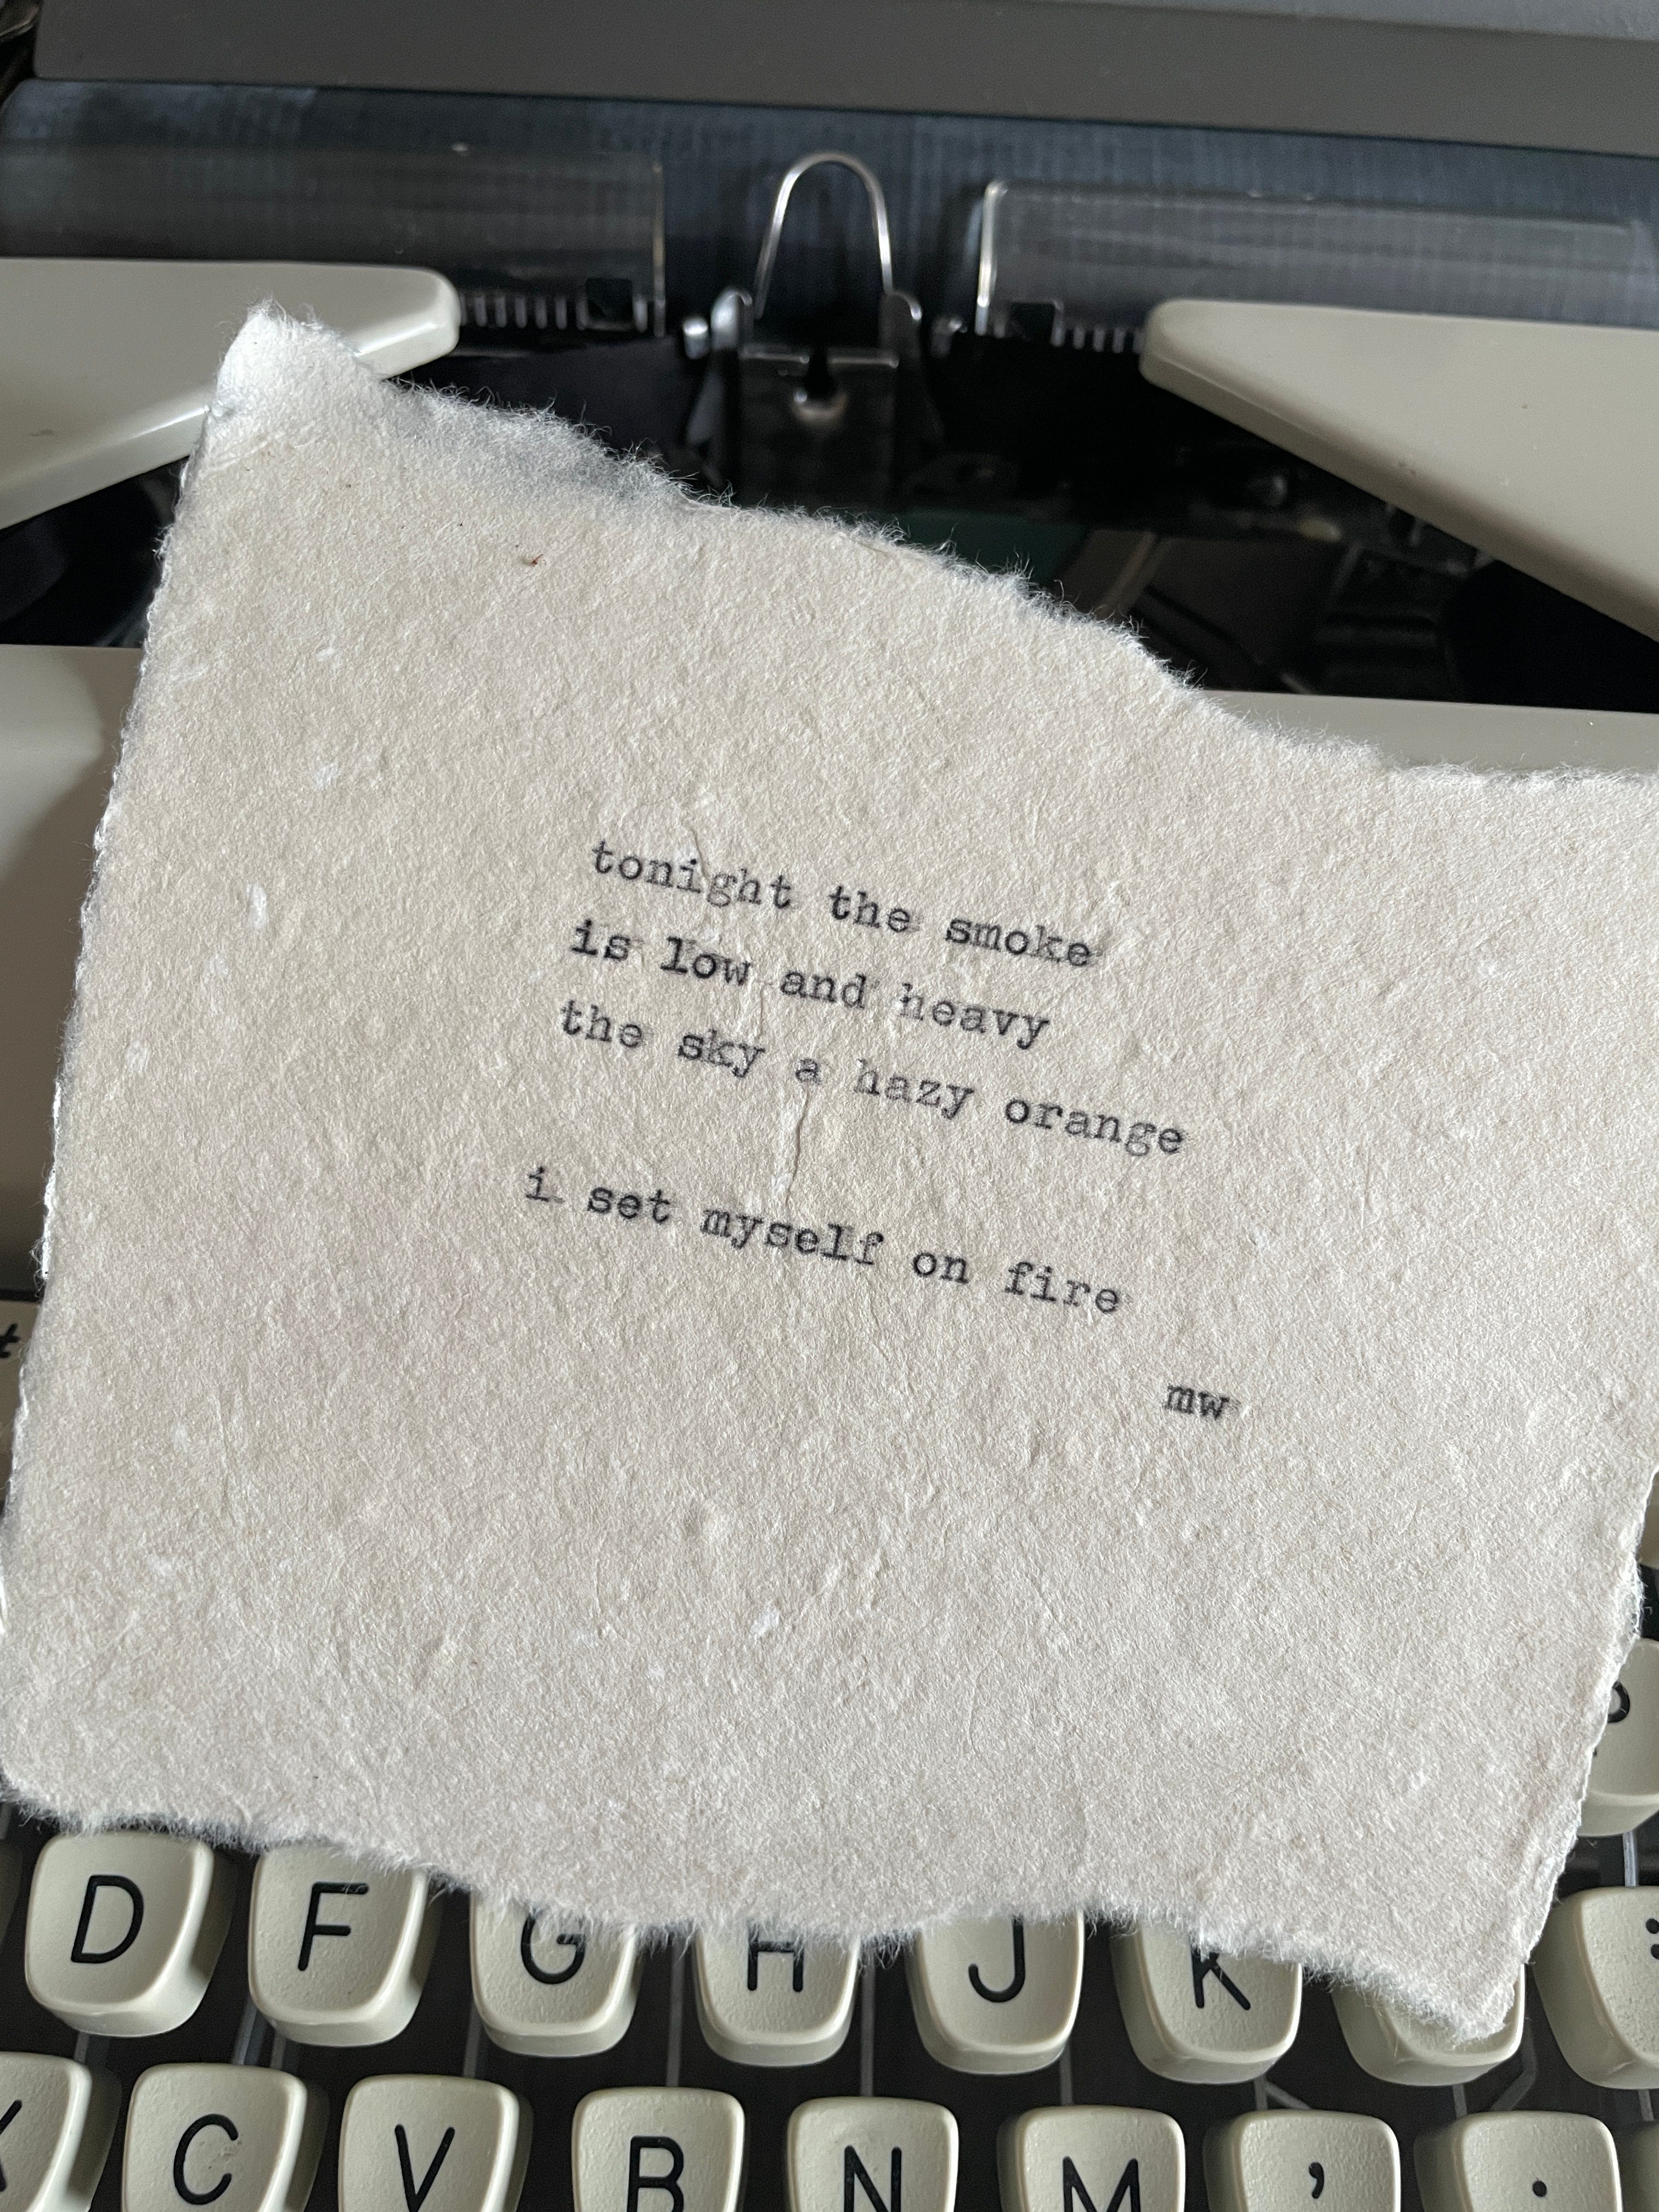 tonight the smoke
is low and heavy
the sky a hazy orange
i set myself on fire
mw
t
D F G H J K :
X C V B N M , .